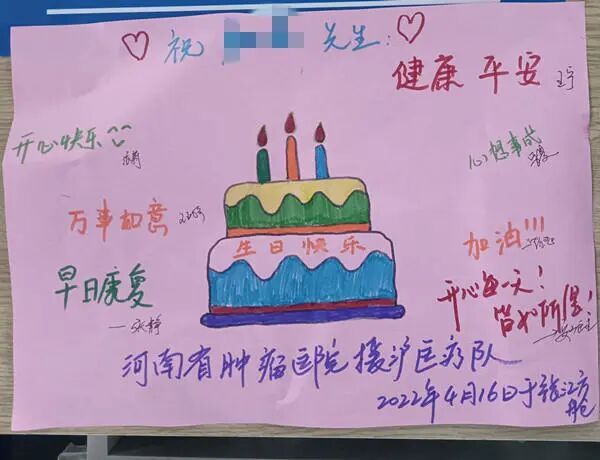 祝 先生：
健康 平安
王宁
开心快乐
心想事成
万事如意
加油!!!
生日快乐
早日康复
—张静
开心每一天!
皆如所愿!
河南省肿瘤医院援沪医疗队
2022年4月16日于张江方舱